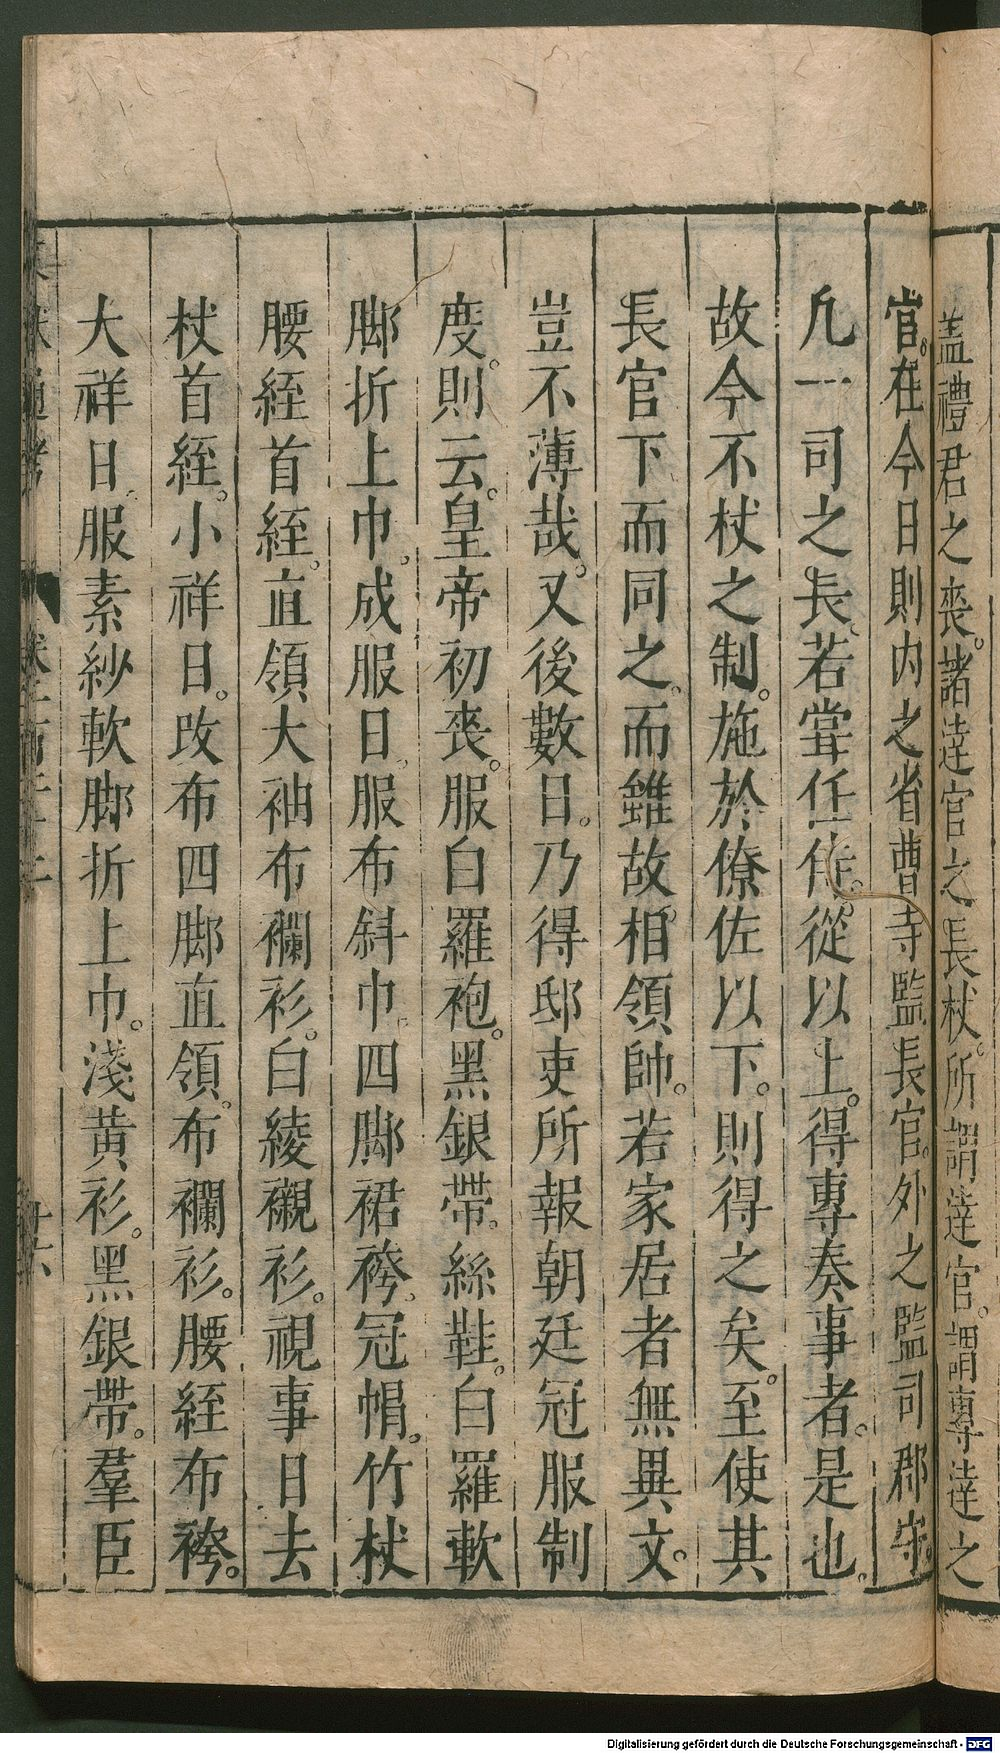 蓋禮君之喪。諸達官之長杖。所謂達官。謂專達之
官。在今日則內之省曹寺監長官。外之監司郡守。
凡一司之長。若當任侍。從以上。得專奏事者。是也。
故今不杖之制。施於僚佐以下。則得之矣。至使其
長官下而同之。而雖故相。領帥。若家居者無異文。
豈不薄哉。又後數日。乃得邸吏所報朝廷冠服制
度。則云。皇帝初喪。服白羅袍。黑銀帶。絲鞋。白羅軟
脚折上巾。成服日。服布斜巾。四脚裙袴。冠帽。竹杖
腰絰首絰。直領大袖布襴衫。白綾襯衫。視事日去
杖首絰。小祥日。改布四脚直領。布襴衫。腰絰布袴。
大祥日。服素紗軟脚折上巾。淺黄衫。黑銀帶。羣臣
通考
Digitalisierung gefördert durch die Deutsche Forschungsgemeinschaft - DFG